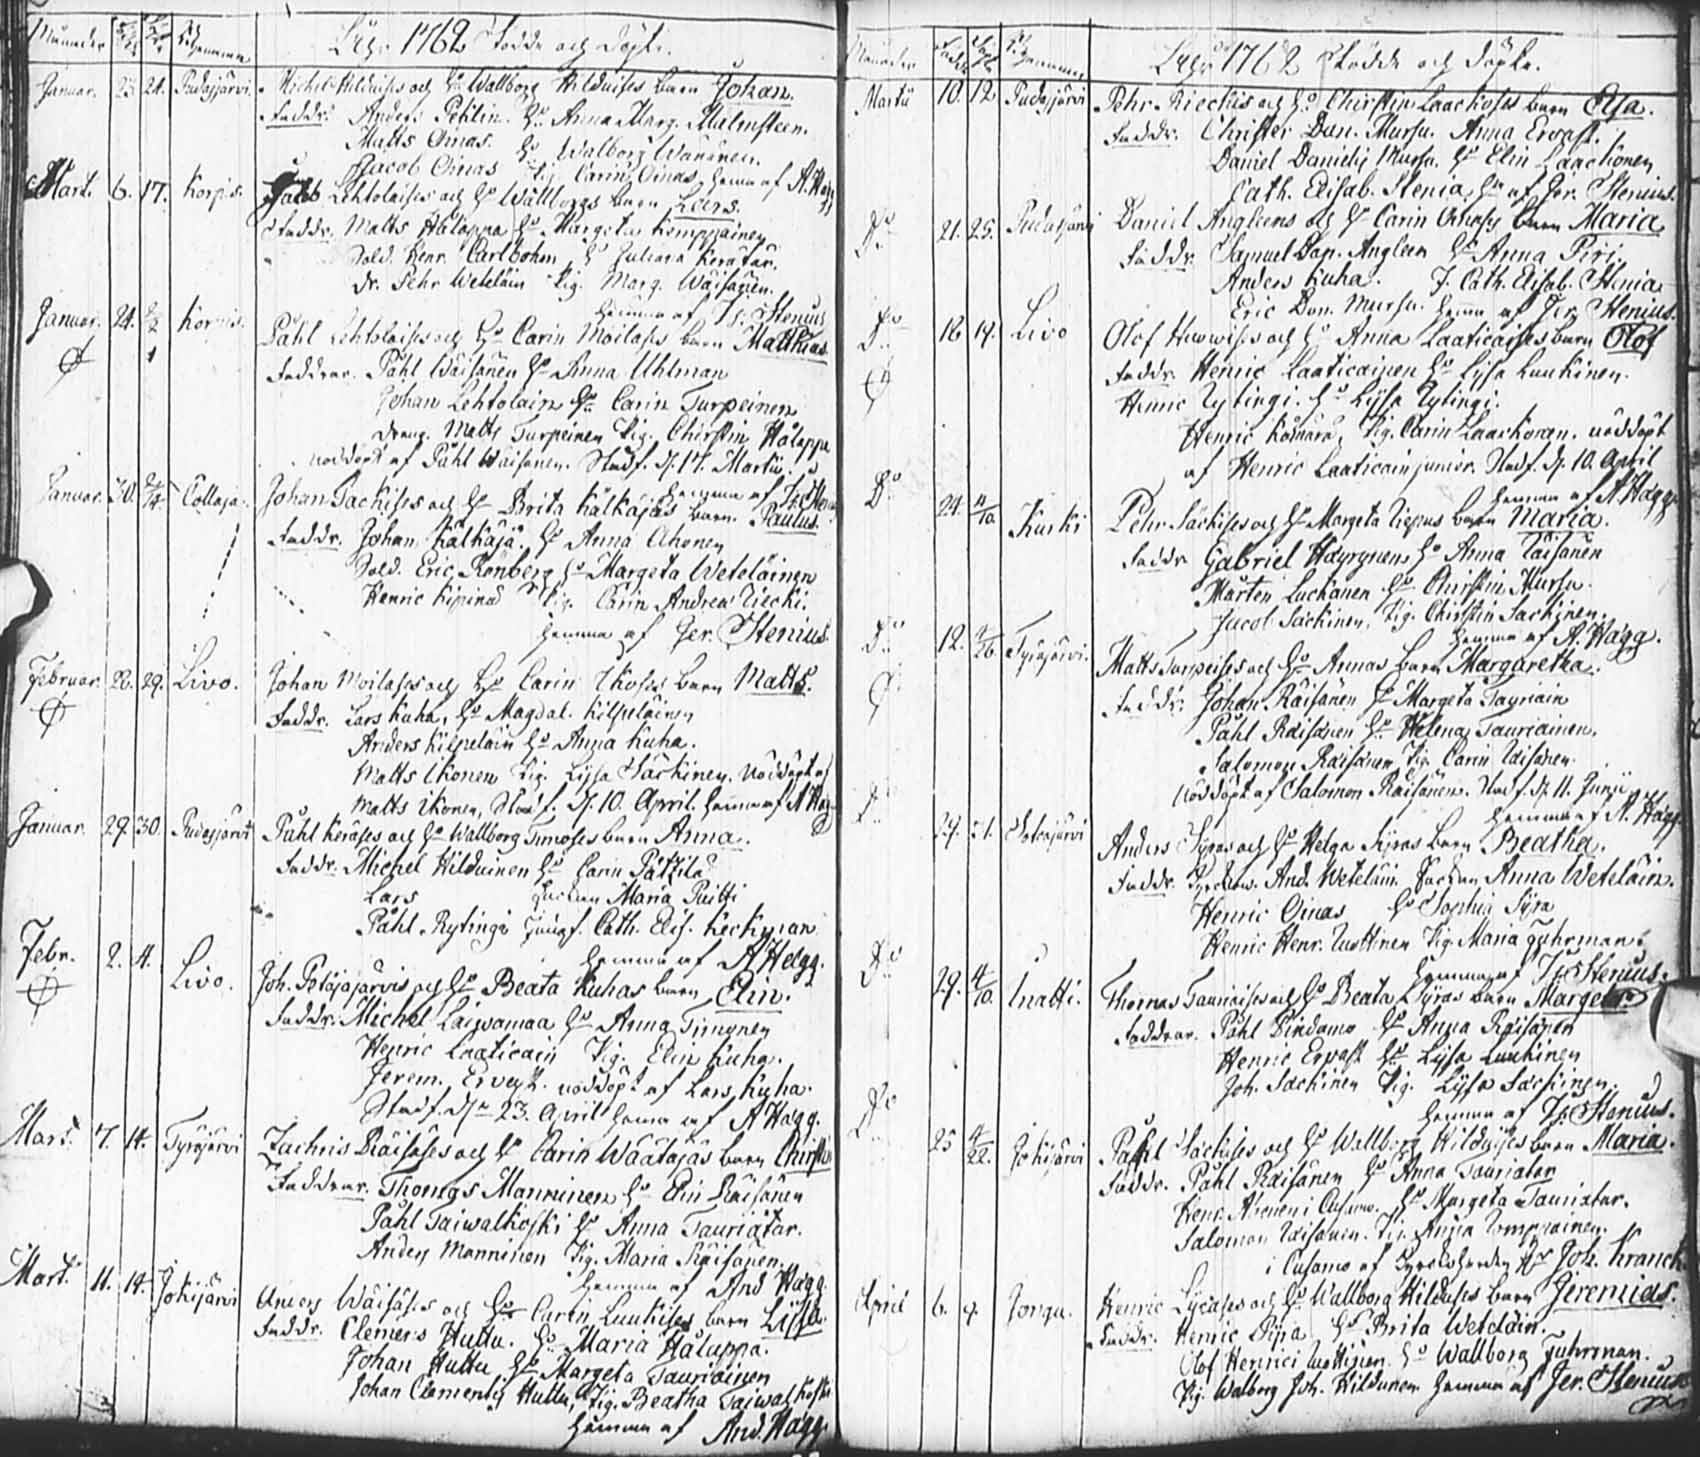 Månader
1762 Födde och döpte.
Januar. 23. 24. Pudasjärvi. Michel Hilduises och Hu Wallborg Hilduises barn Johan.
Faddr. Anders Pehlin. Hu Anna Marg. Malmsteen.
Matts Oinas. Hu Walborg Wänänen.
Jacob Oinas Pig. Carin Oinas, hemma af A. Hägg
Mart. 6. 17. Korpis. Jacob Lehtolaises och Hu Wallborgs barn Lars.
Faddr. Matts Halappa Hu Margeta Kemppainen
Sold. Henr. Carlbohm Hu Juliana Keratar.
Dr. Pehr Wetelain Pig. Marg. Wäisänen.
hemma af Jer. Stenius
Januar. 24. Korpis. Påhl Lehtolaises och Hu Carin Moilases barn Matthias.
Faddrar. Påhl Wäisänen Hu Anna Uhlman
Johan Lehtolain Hu Carin Turpeinen
dreng. Matts Turpeinen Pig. Chirstin Halappa
nöddöpt af Påhl Wäisänen. Stadf. d. 17. Martii.
hemma af Jer. Stenius
Januar. 30. Collaja. Johan Sackises och Hu Brita Kälkäjäs barn. Paulus.
Faddr. Johan Kälkäjä. Hu Anna Ahonen
Sold. Eric Renberg Hu Margeta Weteläinen
Henric Kipinä Pig. Carin Andrea Riecki.
hemma af Jer. Stenius.
Februar. 22. 29. Livo. Johan Moilases och Hu Carin Ikoses barn Matts.
Faddr. Lars Kuha, Hu Magdal. Kilpeläinen
Anders Kilpeläin Hu Anna Kuha.
Matts Ikonen Pig. Lijsa Särkinen. Nöddöpt af
Matts Ikonen, Stadf. d. 10. April. hemma af A Hägg
Januar. 29. 30. Pudasjärvi Påhl Keräses och Hu Wallborg Timoses barn Anna.
Faddr. Michel Hilduinen Hu Carin Pätzilä
Lars Maria Puitti
Påhl Rytingi Jungf. Cath. Elis. Heckman
hemma af A Helgg.
Febr. 2. 4. Livo. Joh. Petäjäjärvis och Hu Beata Kuhas barn Elin.
Faddr. Michel Laiwamaa Hu Anna Timonen
Henric Laaticain Pig. Elin Kuha.
Jerem. Ervast. nöddöpt af Lars Kuha.
Stadf. dn 23. April hemma af A Hägg.
Mart. 7. 14. Tyräjärvi Zachris Räisäses och Hu Carin Wäätäjäs barn Chirstin
Faddrar. Thomas Manninen Hu Elin Räisänen
Påhl Taiwalkoski Hu Anna Tauriatar.
Anders Manninen Pig. Maria Räisänen.
hemma af And Hägg.
Mart. 11. 14. Jokijärvi Anders Wäisäses och Hu Carin Luukises barn Lijsa.
Faddr. Clemens Huttu. Hu Maria Halappa.
Johan Huttu Hu Margeta Tauriainen
Johan Clementis Huttu, Pig. Beatha Taiwalkoski
hemma af And. Hägg.
Månader
1762 Födde och döpte.
Martii 10. 12 Pudasjärvi Pehr Rieckis och Hu Chirstin Laackoses barn Elsa.
Faddr. Christer Dan. Mursu. Anna Ervast.
Daniel Danielis Mursu. Hu Elin Laackonen
Cath. Elisab. Stenia, hemma af Jer. Stenius.
Do 21. 25. Pudasjärvi Daniel Angleens och Hu Carin Oinases barn Maria
Faddr. Samuel Dan. Angleen Hu Anna Piri.
Anders Kuha. J. Cath. Elisab. Stenia
Eric Dan. Mursu. hemma af Jer. Stenius.
Do 16 19. Livo Olof Huwwises och Hu Anna Laaticaises barn Olof
Faddr. Henric Laaticainen Hu Lijsa Luukinen.
Henric Rytingi. Hu Lijsa Rytingi.
Henric Kämärä, Pig. Carin Laackonen. nöddöpt
af Henric Laaticain junior. Stadf. d. 10. April
hemma af A Hägg.
Do 24. 4/10. Kurki Pehr Säckises och Hu Margeta Riepus barn Maria.
Faddr. Gabriel Häyrynen Hu Anna Räisänen
Mårten Luckanen Hu Chirstin Mursu.
Jacob Säckinen, Pig. Chirstin Sackinen.
hemma af A. Hägg.
Do 12. 4/26. Tyräjärvi. Matts Turpeises och Hu Annas barn Margaretha.
Faddr. Johan Räisänen Hu Margeta Tauriain
Påhl Räisänen Hu Helena Tauriainen.
Salomon Räisänen, Pig. Carin Räisänen.
nöddöpt af Salomon Räisänen. Stadf. d. 11. Junii
hemma af A. Hägg.
Do 29. 31. Anders Syräs och Hu Helga Syräs barn Beatha.
Faddr. And. Wetelain. Anna Wetelain.
Henric Oinas Hu Sophia Syrä
Henric Henr. Luottinen Pig. Maria Fuhrman.
hemma af Jer. Stenius.
Do 29. 4/10. Inatti. Thomas Taunaises och Hu Beata Syräs barn Margeta.
Faddrar. Påhl Pindamo Hu Anna Räisänen
Henric Ervast Hu Lijsa Luukinen
Joh. Säckinen Pig. Lijsa Säckinen.
hemma af Jer. Stenius.
Do 25 4/22. Jokijärvi Påhl Säckises och Hu Wallborg Hilduises barn Maria.
Faddr. Påhl Räisänen Hu Anna Tauriatar
Henr. Ahonen i Cusamo. Hu Margeta Tauriatar.
Salomon Räisänen. Pig. Anna Kemppainen.
i Cusamo af Kyrckoherden Hr Joh. Kranck.
April 6. 9. Jongu. Henric Lycases och Hu Wallborg Hilduses barn Jeremias.
Faddr. Henric Pija Hu Brita Wetelain.
Olof Henrici Luottinen. Hu Wallborg Fuhrman.
Pig. Walborg Joh. Hildunen hemma af Jer. Stenius